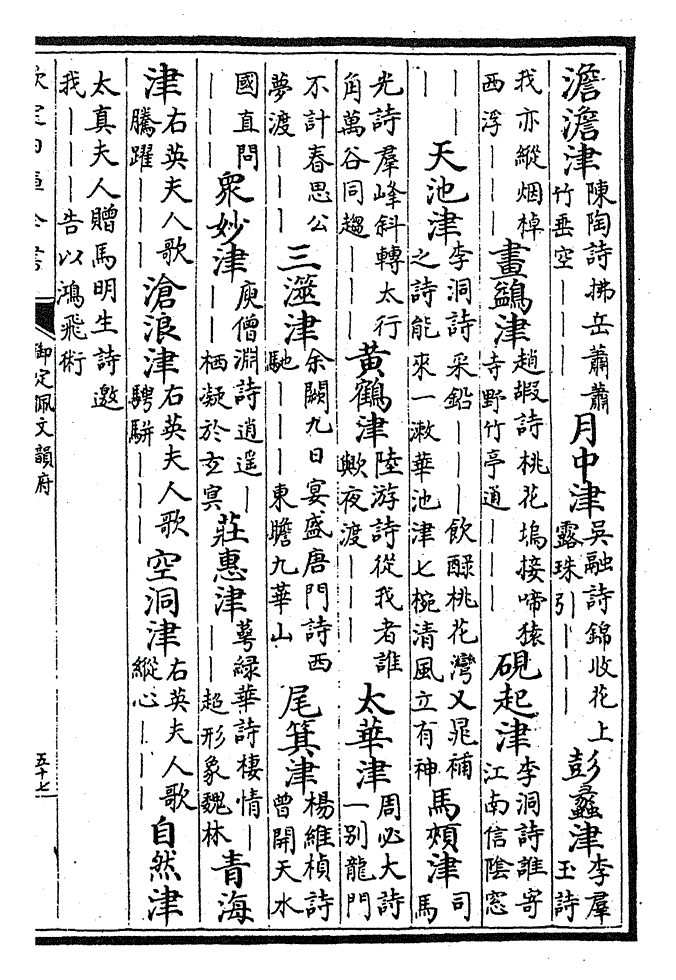 澹澹津陳陶詩拂岳蕭蕭竹垂空｜｜｜月中津吳融詩錦收花上露珠引｜｜｜彭蠡津李羣玉詩
我亦縱烟棹西浮｜｜｜畫鷁津趙嘏詩桃花塢接啼猿寺野竹亭通｜｜｜硯起津李洞詩誰寄江南信陰窓
｜｜｜天池津李洞詩采鉛｜｜｜飲醁桃花灣又晁補之詩能來一漱華池津七椀清風立有神馬頰津司馬
光詩羣峰斜轉太行角萬谷同趨｜｜｜黃鶴津陸游詩從我者誰歟夜渡｜｜｜太華津周必大詩一别龍門
不計春思公夢渡｜｜｜三澨津余闕九日宴盛唐門詩西馳｜｜｜東瞻九華山尾箕津楊維楨詩曾開天水
國直問｜｜｜衆妙津庾僧淵詩逍遥｜｜｜栖凝於玄冥莊惠津萼緑華詩棲情｜｜｜超形象魏林青海
津右英夫人歌騰躍｜｜｜滄浪津右英夫人歌騁駢｜｜｜空洞津右英夫人歌縱心｜｜｜自然津
太真夫人贈馬明生詩邀我｜｜｜告以鴻飛術
欽定四庫全書
御定佩文韻府
五十七